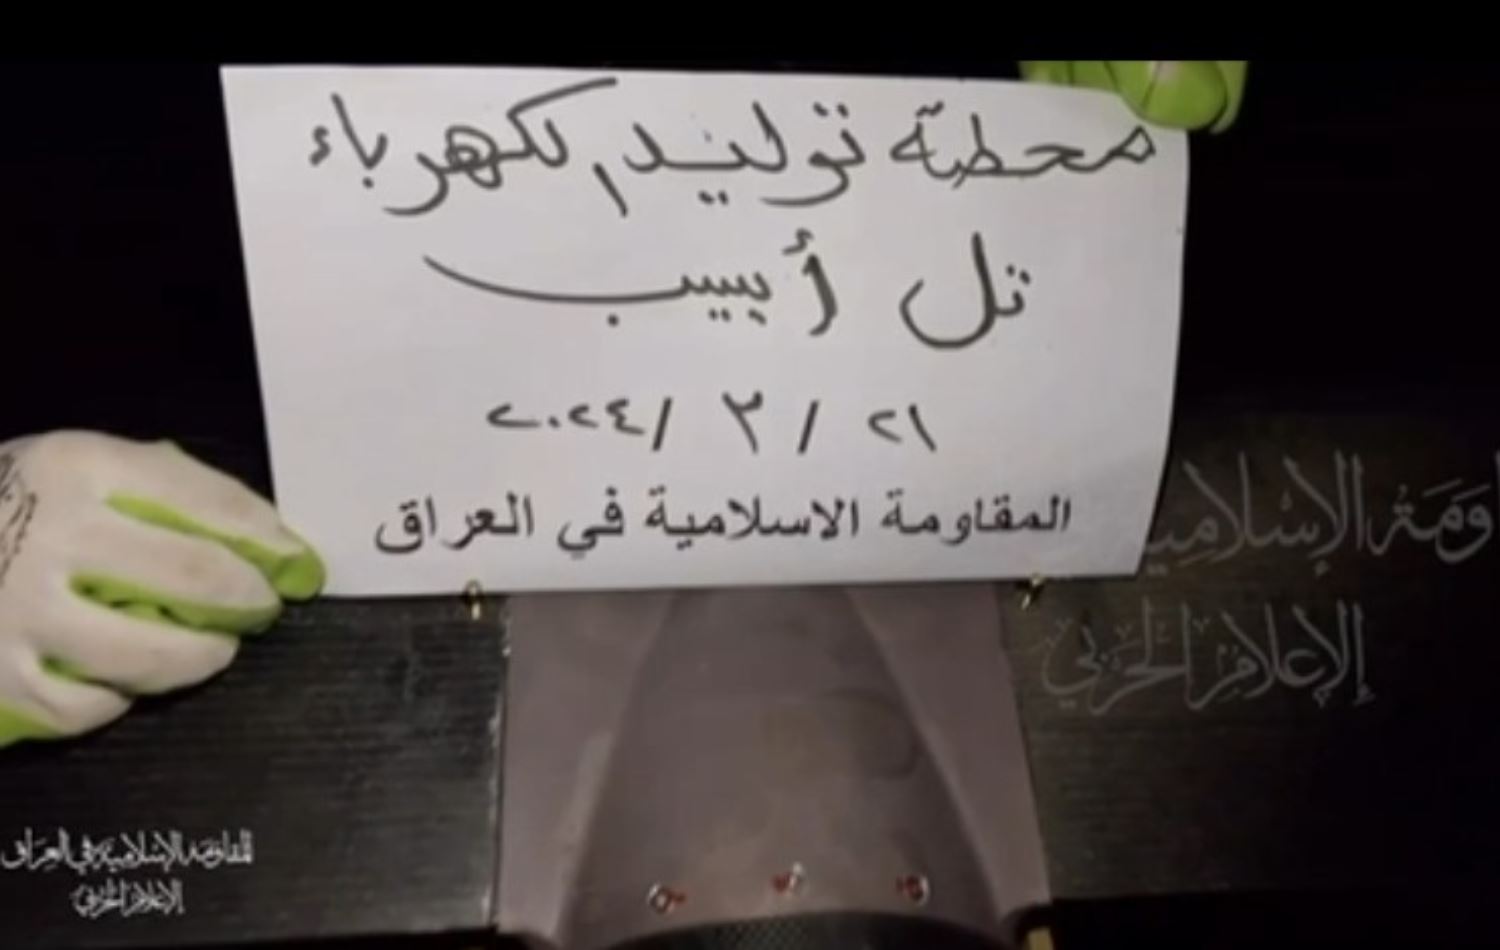 محطة توليد الكهرباء
تل أبيب
٢١ / ٣ /٢٠٢٤
المقاومة الاسلامية في العراق
اومَة الإسْلامِية
الإعلام الحربي
المقاومة الإسلامية في العراق
الإعلام الحربي